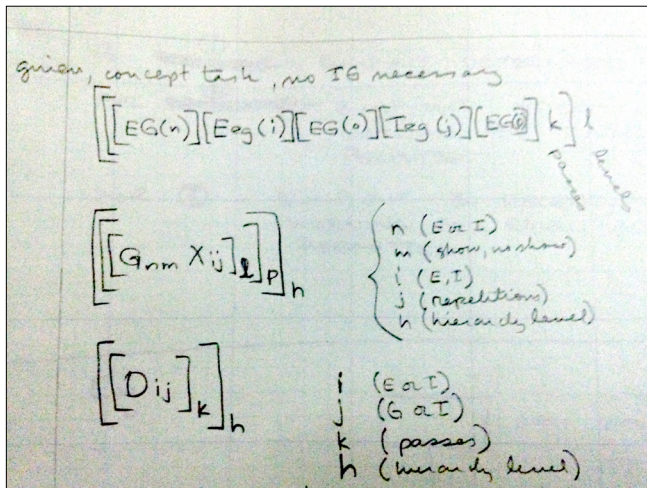 given, concept task, no IG necessary
[[[EG(n)][Eeg(i)][EG(o)][Ieg(j)][EG(p)] k] l
passes levels
[[[G nm X ij] l] p] h
n (E or I)
m (show, no show)
i (E, I)
j (repetitions)
h (hierarchy level)
[[D ij] k] h
i (E or I)
j (G or I)
k (passes)
h (hierarchy level)